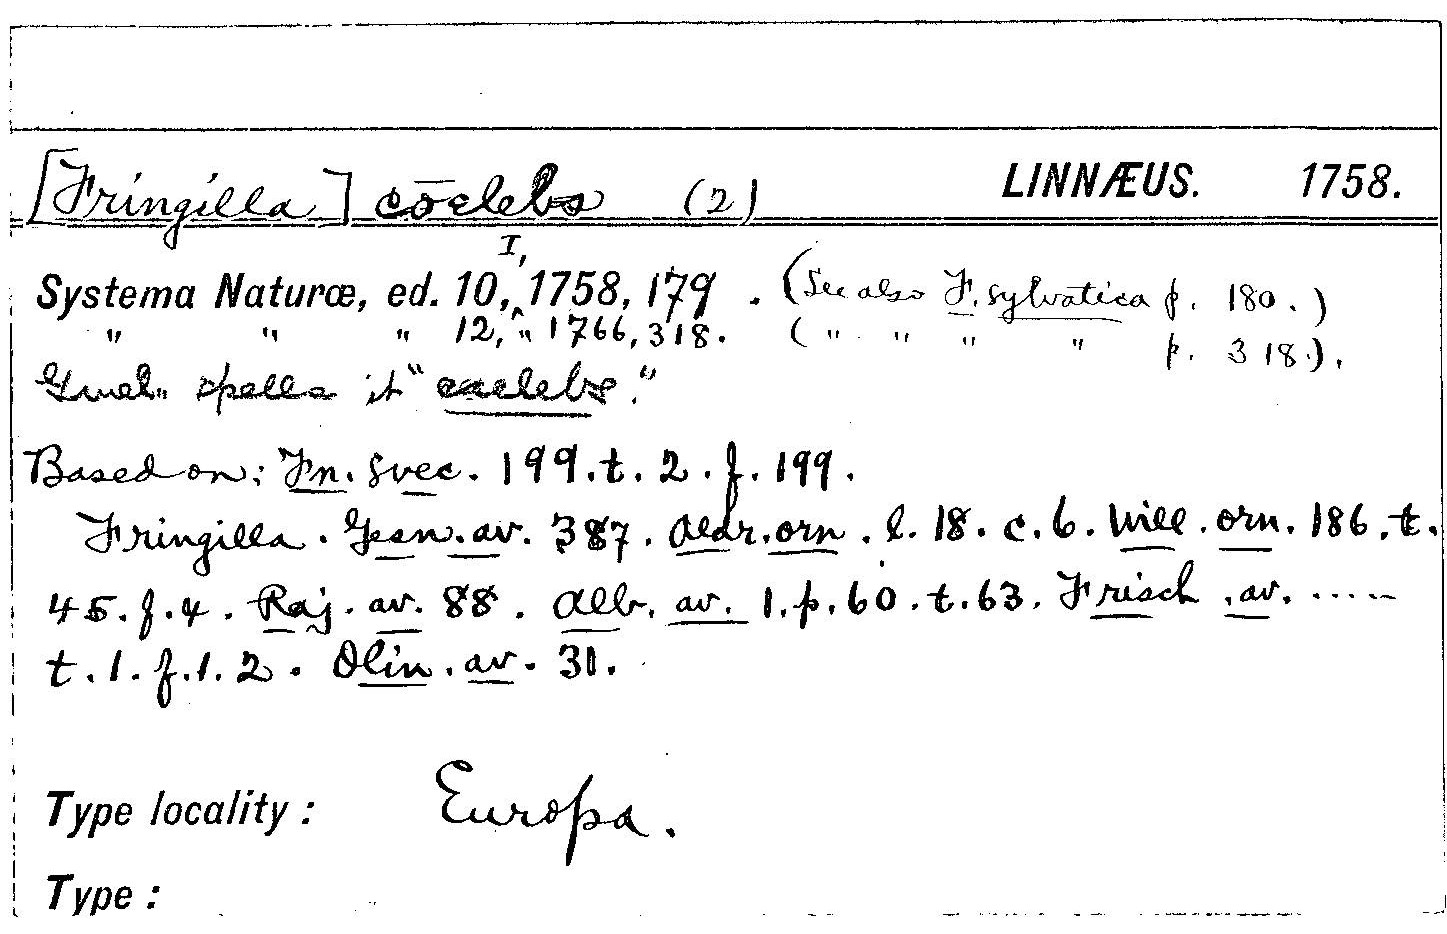 [Fringilla] cœlebs (2) LINNÆUS. 1758.
Systema Naturæ, ed. 10, I, 1758, 179. (See also F. sylvatica p. 180.)
" " " 12, " 1766, 318. (" " " " p. 318.).
Gmel. spells it "caelebs."
Based on: Fn. Svec. 199. t. 2. f. 199.
Fringilla. Gesn. av. 387. Aldr. orn. l. 18. c. 6. Will. orn. 186. t.
45. f. 4. Raj. av. 88. Alb. av. 1. p. 60. t. 63. Frisch. av. .....
t. 1. f. 1. 2. Olin. av. 31.
Type locality: Europa.
Type: